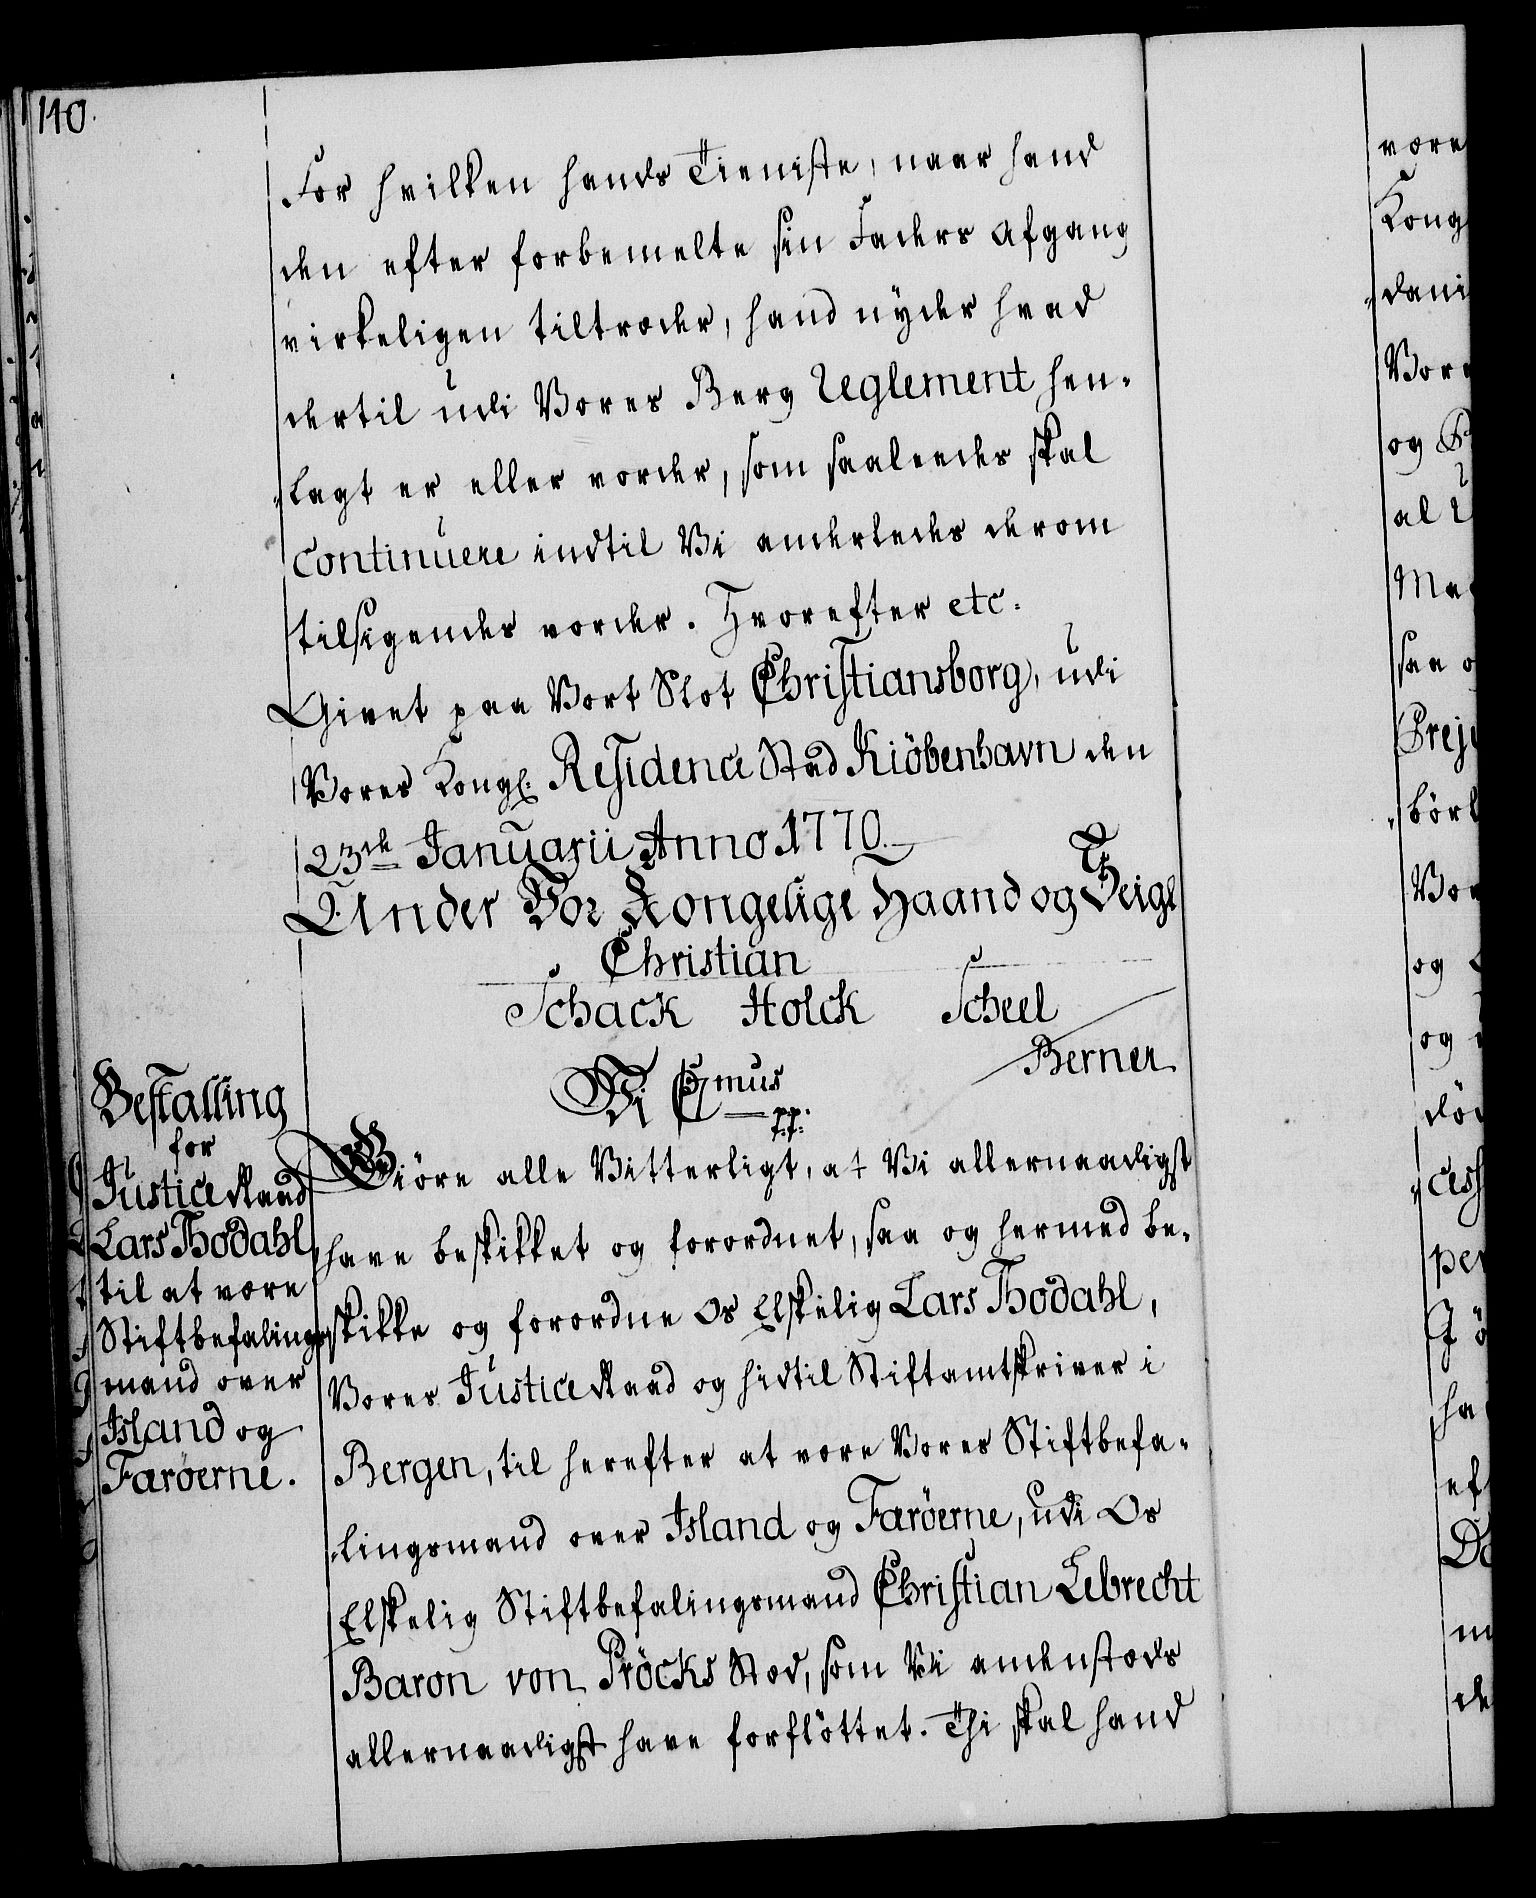 140.
For hvilken hands Tieniste, naar hand
den efter forbemelte sin Faders Afgang
virkeligen tiltræder, hand nyder hvad
dertil udi Vores Berg Reglement hen-
lagt er eller vorder, som saaleedes skal
continuere indtil Vi anderledes derom
tilsigendes vorder. Hvorefter etc.
Givet paa Vort Slot Christiansborg, udi
Vores Kongl. Residence Stad Kiöbenhavn den
23de Januarii Anno 1770.
Under Vor Kongelige Haand og Seigl
Christian
Schack Holck Scheel
Berner
Vi C7mus
pp:
Bestalling
for
Justice Raad
Lars Thodahl
til at være
Stiftbefalings
mand over
Island og
Færöerne.
Giöre alle Vitterligt, at Vi allernaadigst
have beskikket og forordnet, saa og hermed be-
skikke og forordne Os Elskelig Lars Thodahl,
Vores Justice Raad og hidtil Stiftamtskriver i
Bergen, til herefter at være Vores Stiftbefa-
lingsmand over Island og Færöerne, udi Os
Elskelig Stiftbefalingsmand Christian Lebrecht
Baron von Pröcks Stæd, som Vi andenstæds
allernaadigst have forflöttet. Thi skal hand
være
Kong
dani
Vor
og
al
saa
Prej
börl
Vor
og
og
cess
per
ha
ef
de